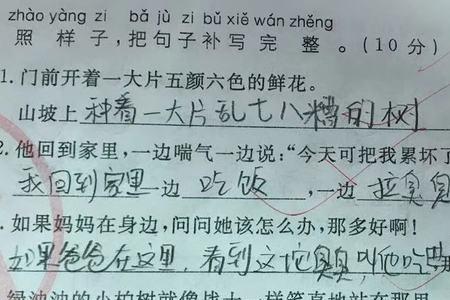 zhào yàng zi bǎ jù zi bǔ xiě wán zhěng
照 样 子，把 句 子 补 写 完 整 。（10 分）
1. 门前开着一大片五颜六色的鲜花。
山坡上种着一大片乱七八糟的树
2. 他回到家里，一边喘气一边说：“今天可把我累坏了
我回到家里一边 吃饭 ，一边 拉臭臭
. 如果妈妈在身边，问问她该怎么办，那多好啊！
如果爸爸在这里，看到这坨臭臭叫他吃
绿油油的小柏树就像战士一样笔直地站在那里